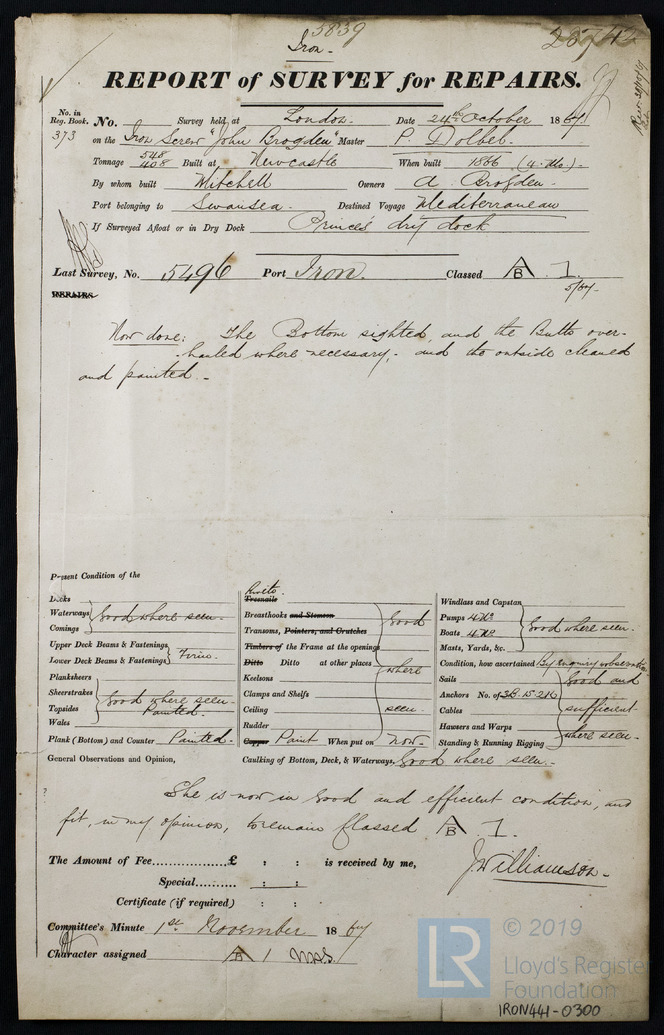 5839
Iron.
REPORT of SURVEY for REPAIRS.
No. in Reg. Book. No. Survey held at London. Date 24th October 1867
373 on the Iron Screw "John Brogden" Master P. Dolbel.
Tonnage 548 408 Built at Newcastle When built 1866 (4. Mo).
By whom built Mitchell Owners A. Brogden.
Port belonging to Swansea. Destined Voyage Mediterranean
If Surveyed Afloat or in Dry Dock Prince's dry dock
Last Survey, No. 5496 Port Iron. Classed A B 1.
5/67.
REPAIRS
Now done: The Bottom sighted, and the Butts over-
hauled where necessary; and the outside cleaned
and painted.-
Present Condition of the
Decks
Waterways Good where seen.
Comings
Upper Deck Beams & Fastenings
Lower Deck Beams & Fastenings Firm.
Planksheers
Sheerstrakes Good where seen.
Topsides Painted.
Wales
Plank (Bottom) and Counter Painted.
General Observations and Opinion,
Rivets.
Treenails
Breasthooks and Stemson Good
Transoms, Pointers, and Crutches
Timbers of the Frame at the openings
Ditto Ditto at other places where
Keelsons
Clamps and Shelfs
Ceiling seen.
Rudder
Copper Paint When put on now.
Caulking of Bottom, Deck, & Waterways. Good where seen.
Windlass and Capstan
Pumps 4 No Good where seen.
Boats 4 No
Masts, Yards, &c.
Condition, how ascertained By enquiry observation
Sails Good and
Anchors No. of 3B. 1S. 2K
Cables sufficient
Hawsers and Warps
Standing & Running Rigging where seen.
She is now in good and efficient condition, and
fit, in my opinion, to remain Classed A B 1.
The Amount of Fee............... £ : : is received by me,
Special.......... : : J Williamson.
Certificate (if required) : :
Committee's Minute 1st November 1867
Character assigned A B 1
LR © 2019
Lloyd's Register
Foundation
IRON441-0300